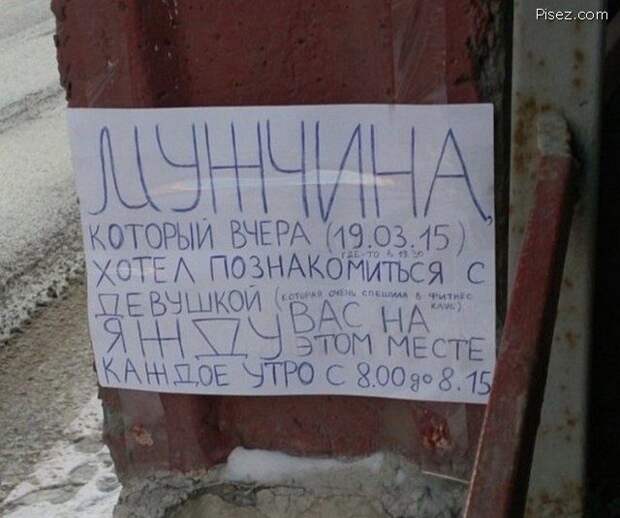 Pisez.com
МУЖЧИНА,
КОТОРЫЙ ВЧЕРА (19.03.15)
ГДЕ-ТО В 19.30
ХОТЕЛ ПОЗНАКОМИТЬСЯ С
ДЕВУШКОЙ (КОТОРАЯ ОЧЕНЬ СПЕШИЛА В ФИТНЕС
КЛУБ)
Я ЖДУ ВАС НА
ЭТОМ МЕСТЕ
КАЖДОЕ УТРО С 8.00 до 8.15